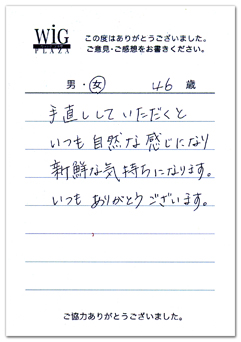 WiG
PLAZA
この度はありがとうございました。
ご意見・ご感想をお書きください。
男・女 46 歳
手直ししていただくと
いつも自然な感じになり
新鮮な気持ちになります。
いつもありがとうございます。
ご協力ありがとうございました。